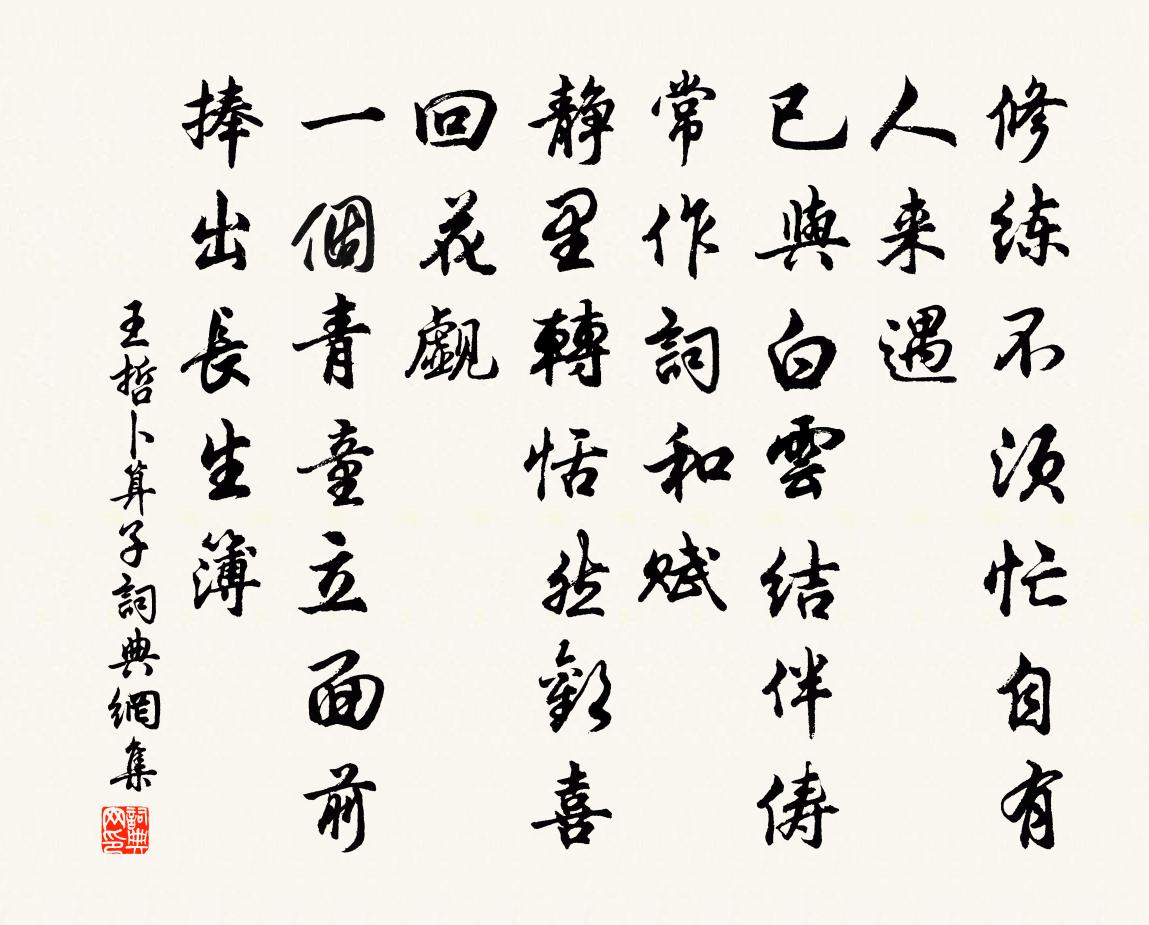 修练不须忙自有
人来遇
已與白雲结伴俦
常作詞和赋
静里轉恬然歡喜
回花觑
一個青童立面前
捧出長生簿
王哲卜算子詞典網集
詞典网印